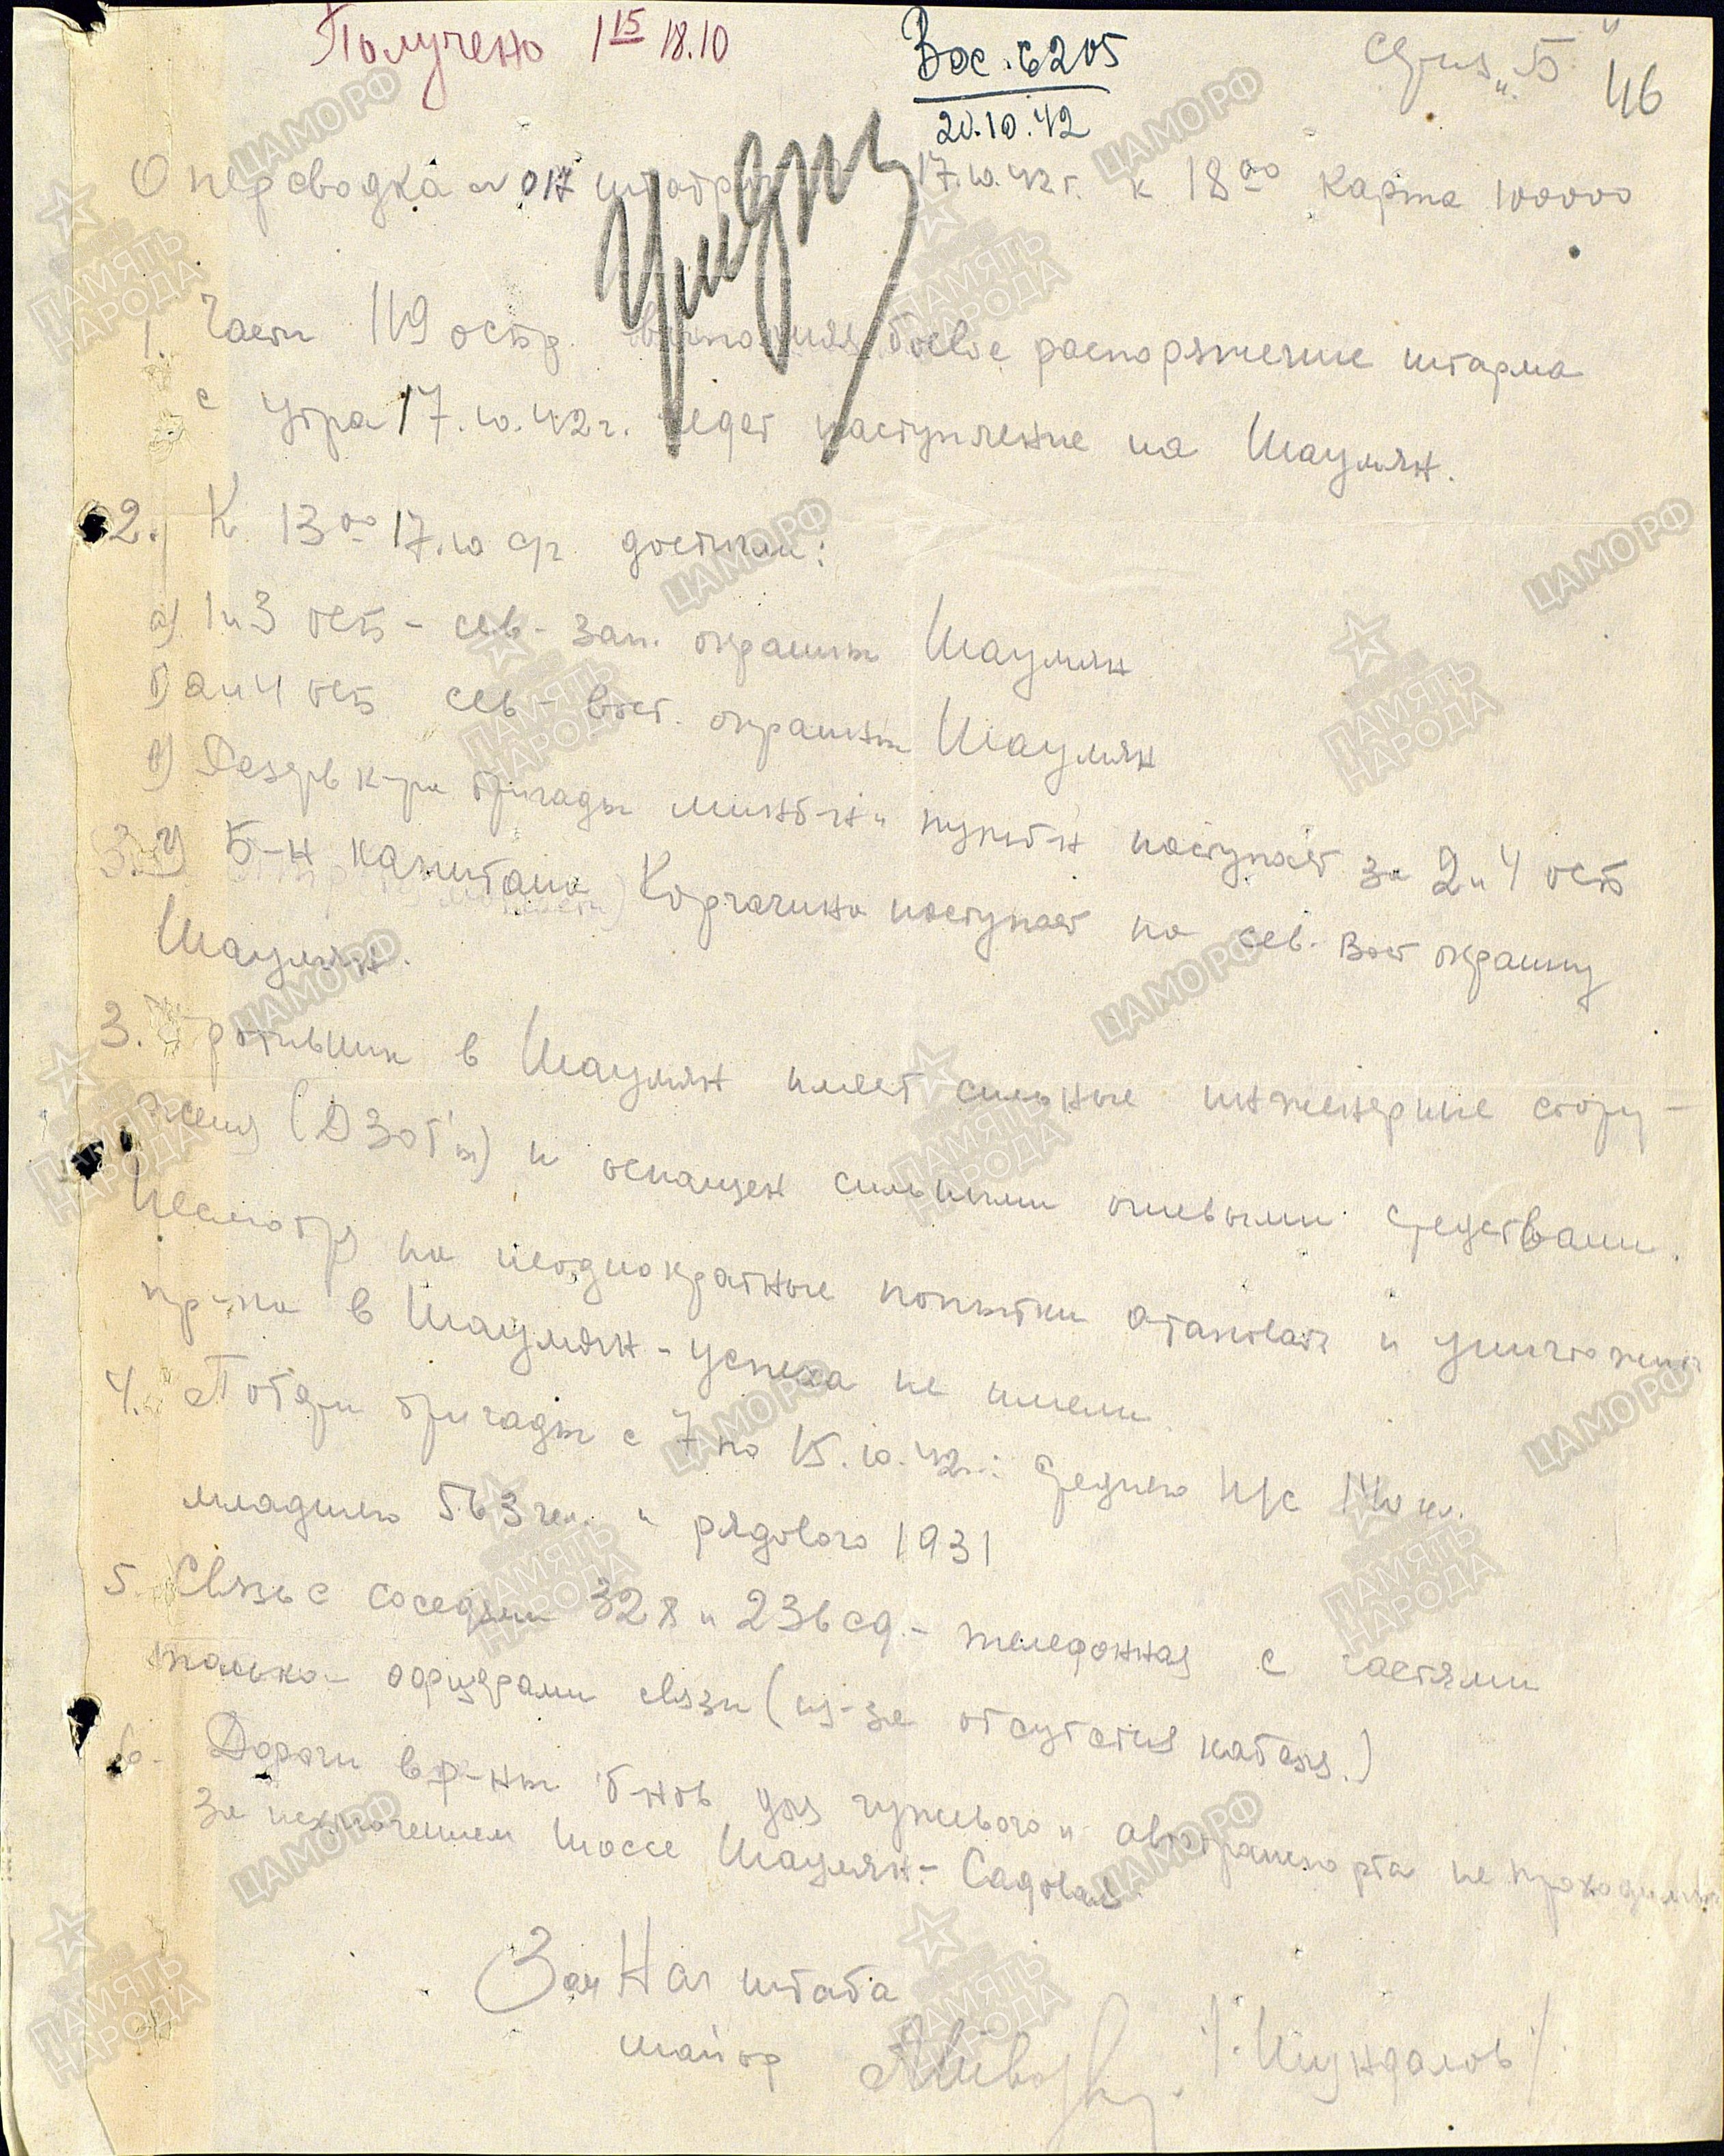 Получено 1 15 18.10
Вос. 6205
20.10.42
серия "Б"
46
Оперсводка № 017 17.10.42 г. к 18 00 карта 100000
1. Части 119 осбр выполняя боевое распоряжение штарма
с утра 17.10.42 г. ведет наступление на Шаумян.
2. К 13 00 17.10 достигли:
а) 1 и 3 осб - сев - зап. окраины Шаумян
б) 2 и 4 осб сев - вост. окраины Шаумян
в) Резерв к-ра бригады минб-н и пульб-н наступает за 2 и 4 осб
г) Б-н капитана Корчагина наступает на сев. вост окраину
Шаумян.
3. Противник в Шаумян имеет сильные инженерные соору-
жения (ДЗОТ'ы) и оснащен сильными огневыми средствами.
Несмотря на неоднократные попытки атаковать и уничтожить
пр-ка в Шаумян - успеха не имели
4. Потери бригады с 7 по 15.10.42 г.: среднего н/с 140 ч.
младшего 563 чел. и рядового 1931
5. Связь с соседями 328 и 236 сд. - телефонная с частями
только офицерами связи (из-за отсутствия кабеля.)
6. Дороги в р-не б-нов для гужевого и автотранспорта не проходимы
за исключением шоссе Шаумян - Садовая.
Зам Нач штаба
майор /Шундалов/
ЦАМО РФ
ПАМЯТЬ НАРОДА